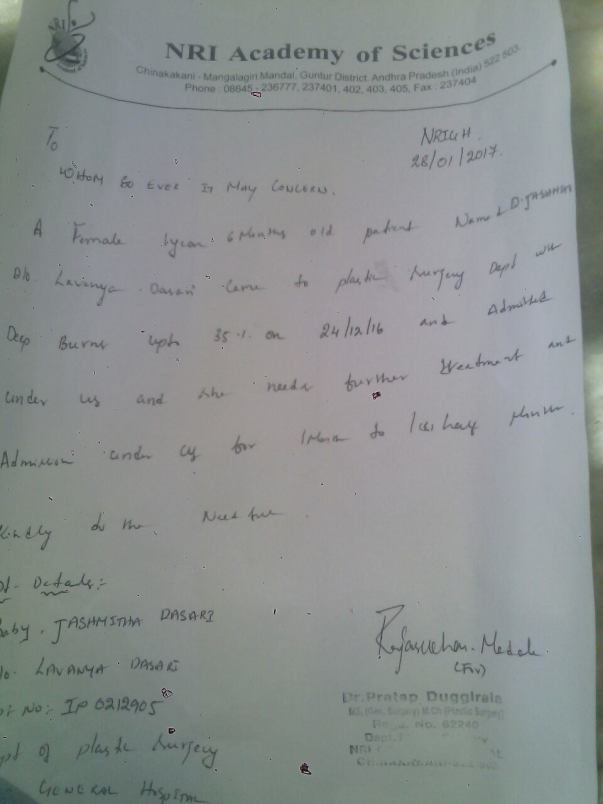 NRI Academy of Sciences
Chinakakani - Mangalagiri Mandal, Guntur District. Andhra Pradesh (India) 522 503.
Phone : 08645 - 236777, 237401, 402, 403, 405, Fax : 237404
NRIGH.
28/01/2017.
To
WHOM SO EVER IT MAY CONCERN.
A Female 1year 6 Months old patient Named D. JASHMITHA
D/o Lavanya Dasari Came to plastic Surgery Dept with
Deep Burns upto 35% on 24/12/16 and Admitted
under us and she needs further treatment and
Admission under us for 1 Month to
Kindly do the Needful.
Details:-
Baby. JASHMITHA DASARI
D/o. LAVANYA DASARI
No: IP 0212905
of plastic Surgery
GENERAL HOSPITAL
(For)
Dr. Pratap Duggirala
MS, (Gen. Surgery) M.Ch (Plastic Surgery)
Regd. No. 62240
Dept.
NRI